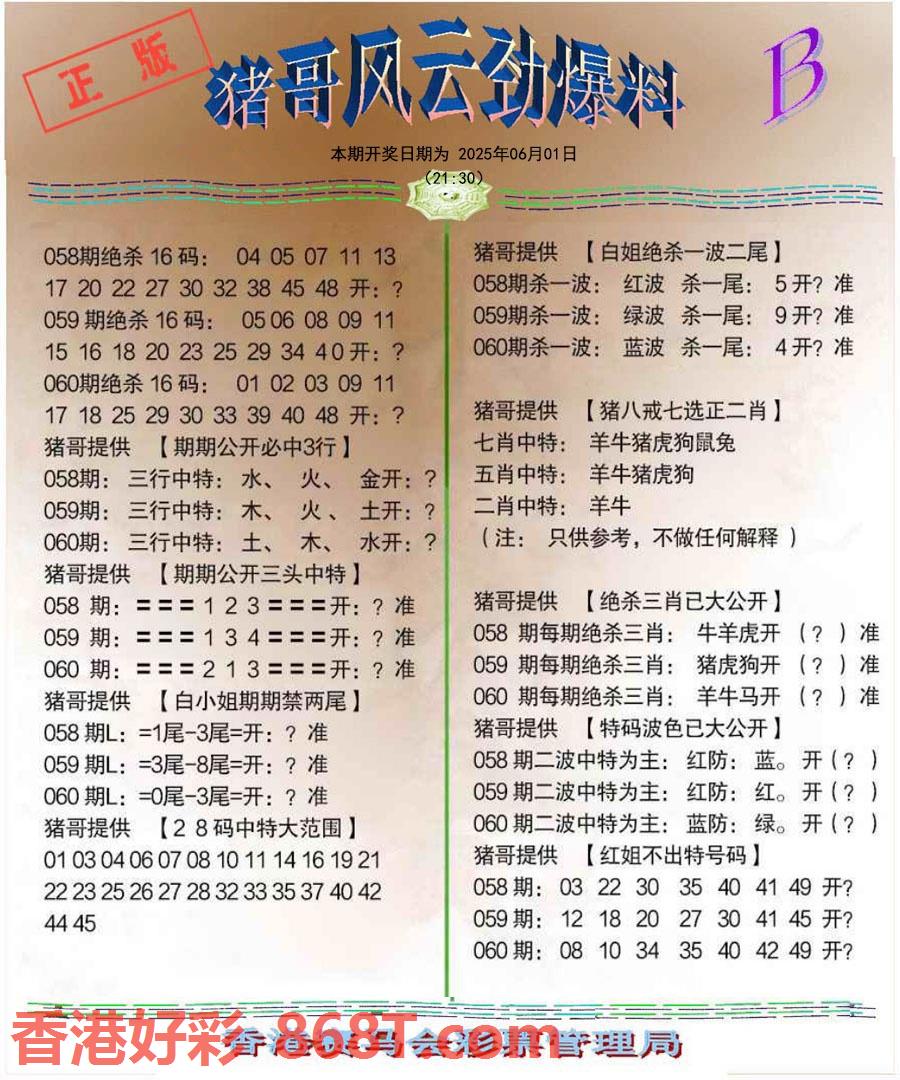 正版
猪哥风云劲爆料
B
本期开奖日期为 2025年06月01日
(21:30)
058期绝杀 16 码： 04 05 07 11 13
17 20 22 27 30 32 38 45 48 开：?
059 期绝杀 16 码： 05 06 08 09 11
15 16 18 20 23 25 29 34 4 0 开：?
060期绝杀 16 码： 01 02 03 09 11
17 18 25 29 30 33 39 40 48 开：?
猪哥提供 【期期公开必中3行】
058期： 三行中特： 水、 火、 金开：?
059期： 三行中特： 木、 火、 土开：?
060期： 三行中特： 土、 木、 水开：?
猪哥提供 【期期公开三头中特】
058 期：＝＝＝1 2 3＝＝＝开：? 准
059 期：＝＝＝1 3 4＝＝＝开：? 准
060 期：＝＝＝2 1 3＝＝＝开：? 准
猪哥提供 【白小姐期期禁两尾】
058 期L：=1尾-3尾=开：? 准
059 期L：=3尾-8尾=开：? 准
060 期L：=0尾-3尾=开：? 准
猪哥提供 【2 8 码中特大范围】
01 03 04 06 07 08 10 11 14 16 19 21
22 23 25 26 27 28 32 33 35 37 40 42
44 45
猪哥提供 【白姐绝杀一波二尾】
058期杀一波： 红波 杀一尾： 5 开? 准
059期杀一波： 绿波 杀一尾： 9 开? 准
060期杀一波： 蓝波 杀一尾： 4 开? 准
猪哥提供 【猪八戒七选正二肖】
七肖中特： 羊牛猪虎狗鼠兔
五肖中特： 羊牛猪虎狗
二肖中特： 羊牛
（注： 只供参考，不做任何解释 ）
猪哥提供 【绝杀三肖已大公开】
058 期每期绝杀三肖： 牛羊虎开 （? ）准
059 期每期绝杀三肖： 猪虎狗开 （? ）准
060 期每期绝杀三肖： 羊牛马开 （? ）准
猪哥提供 【特码波色已大公开】
058 期二波中特为主： 红防： 蓝。 开（? ）
059 期二波中特为主： 红防： 红。 开（? ）
060 期二波中特为主： 蓝防： 绿。 开（? ）
猪哥提供 【红姐不出特号码】
058 期： 03 22 30 35 40 41 49 开?
059 期： 12 18 20 27 30 41 45 开?
060 期： 08 10 34 35 40 42 49 开?
香港好彩 868T.com
香港赛马会彩票管理局